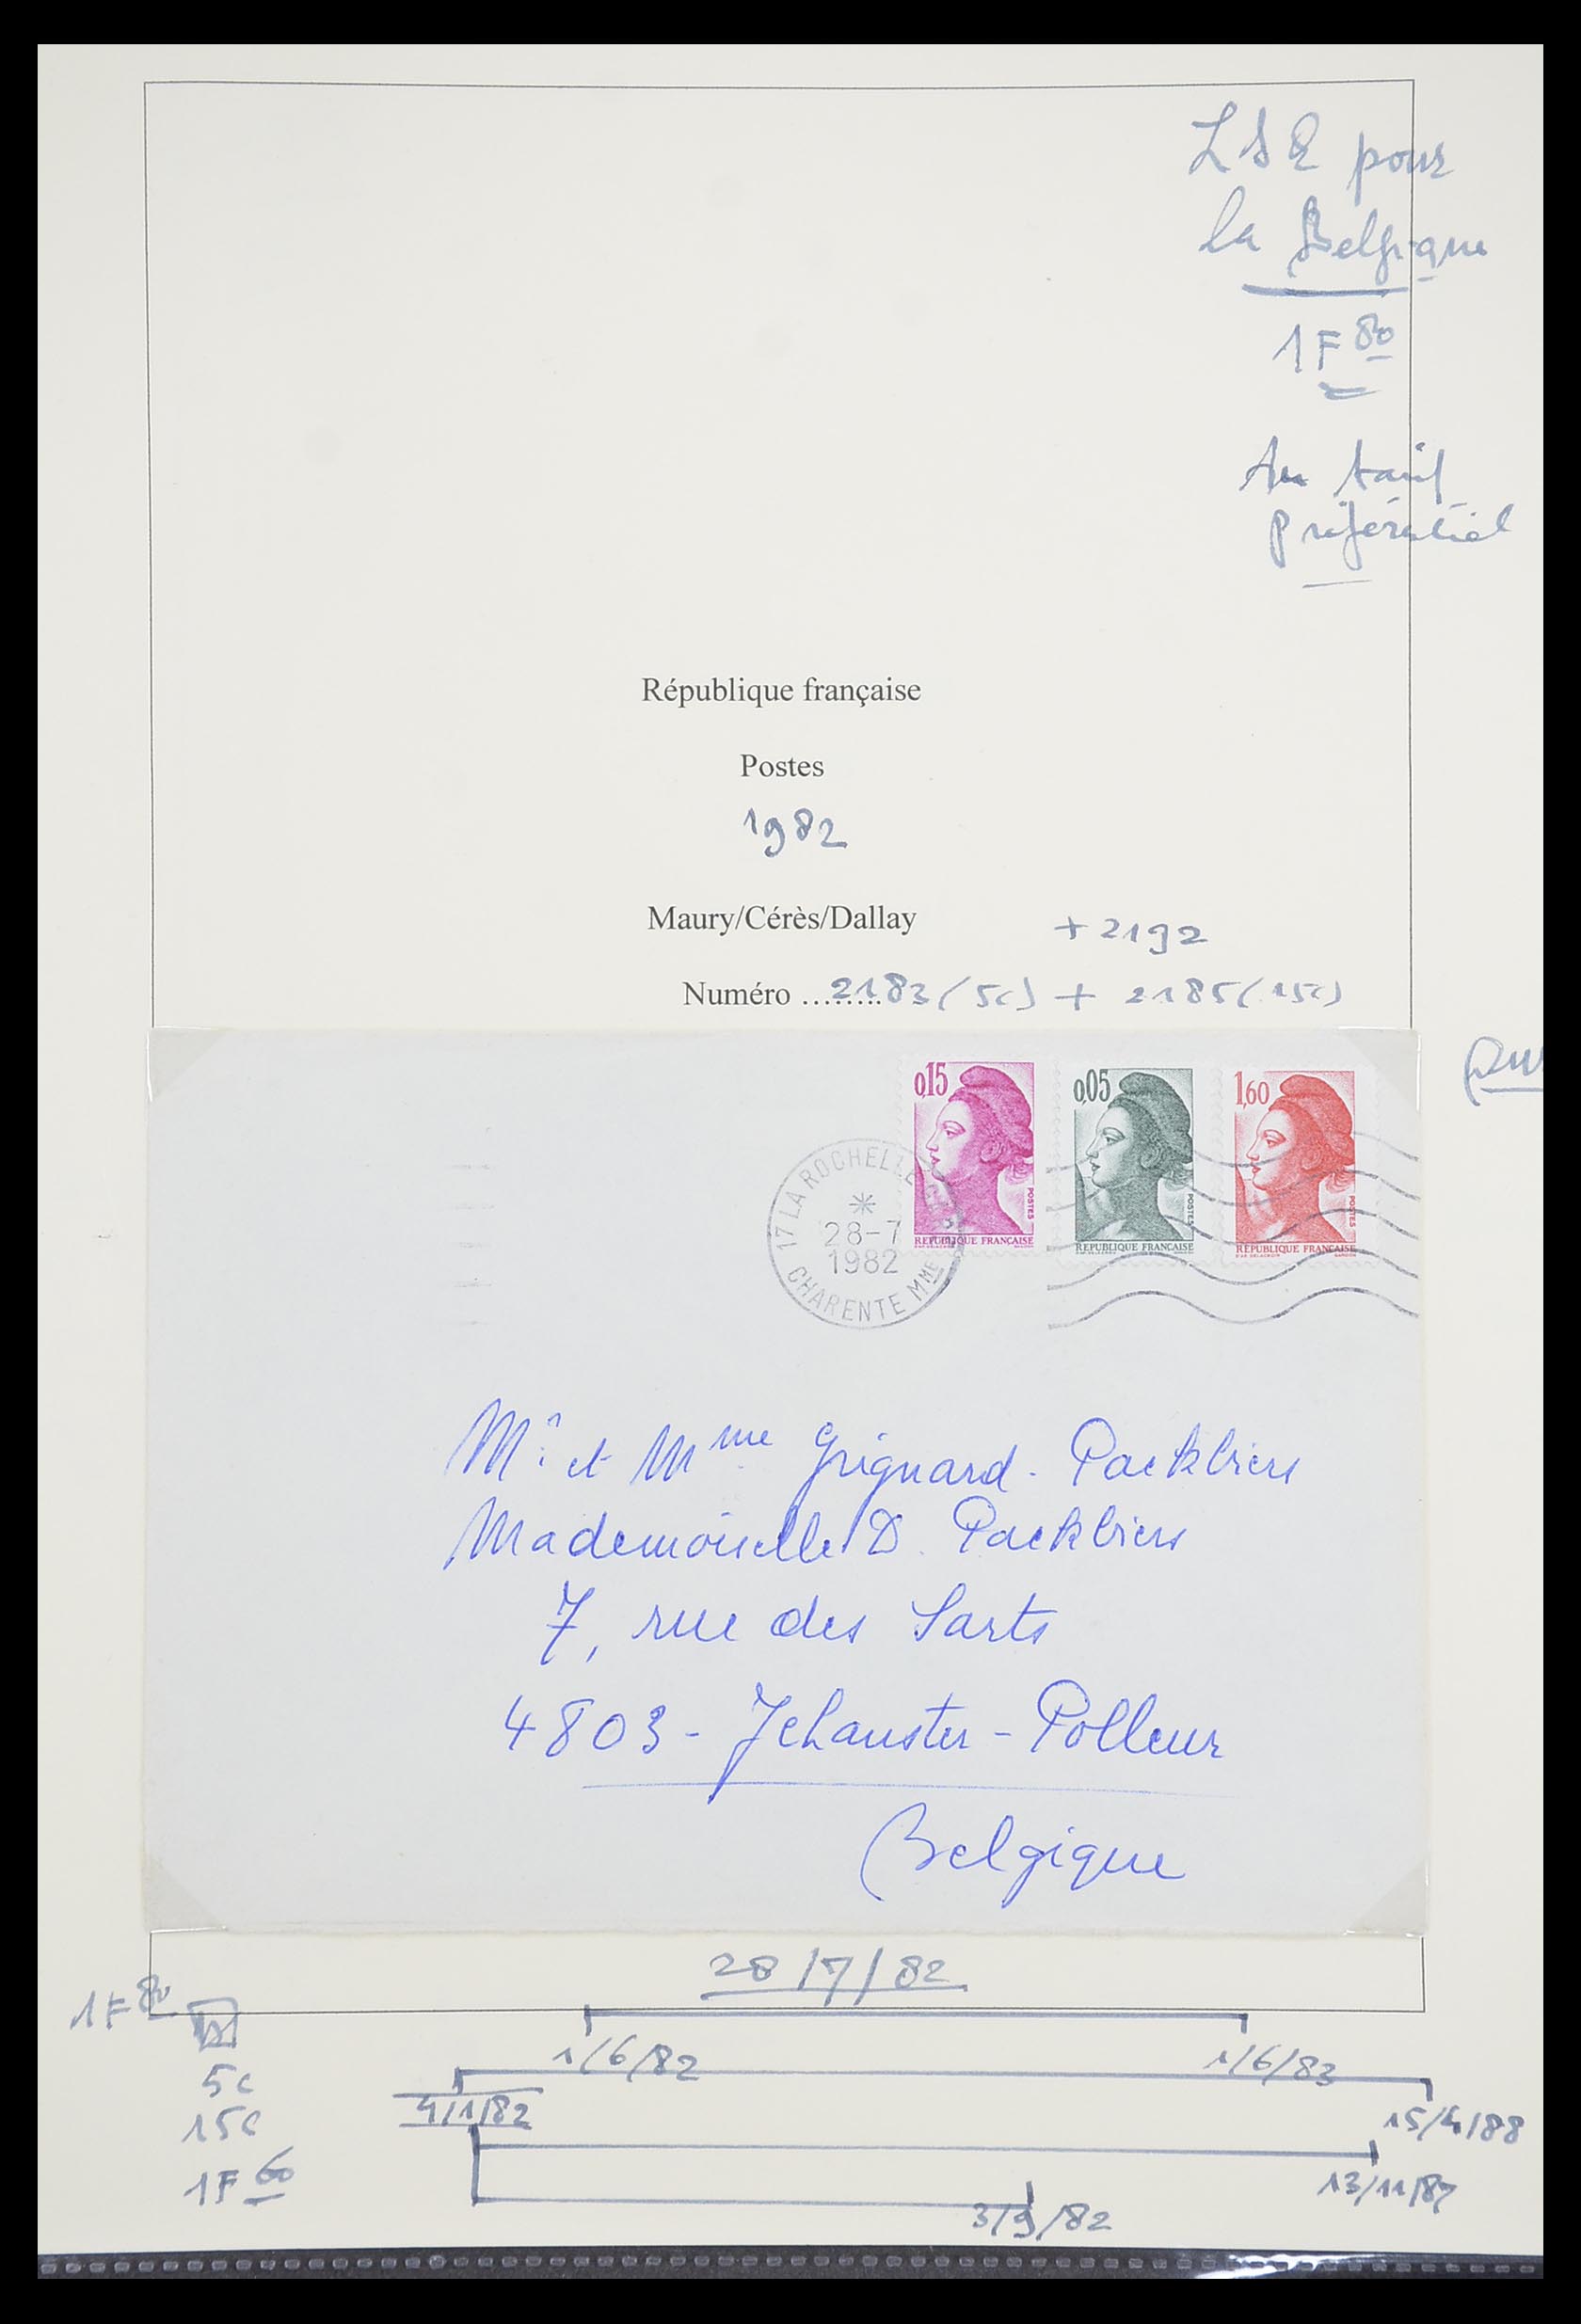 LSE pour
la Belgique
1F80
Au tarif
préférentiel
République française
Postes
1982
Maury/Cérès/Dallay
+ 2192
Numéro ........ 2183 (5c) + 2185 (15c)
0,15
POSTES
REPUBLIQUE FRANÇAISE
0,05
POSTES
REPUBLIQUE FRANÇAISE
1,60
POSTES
REPUBLIQUE FRANÇAISE
17 LA ROCHELLE
*
28-7
1982
CHARENTE MME
Mr et Mme Grignard-Packbiers
Mademoiselle D. Packbiers
7, rue des Sarts
4803 - Jehanster - Polleur
Belgique
28/7/82
1F80
1/6/82
1/6/83
5c
4/1/82
15/4/88
15c
13/11/87
1F60
3/9/82